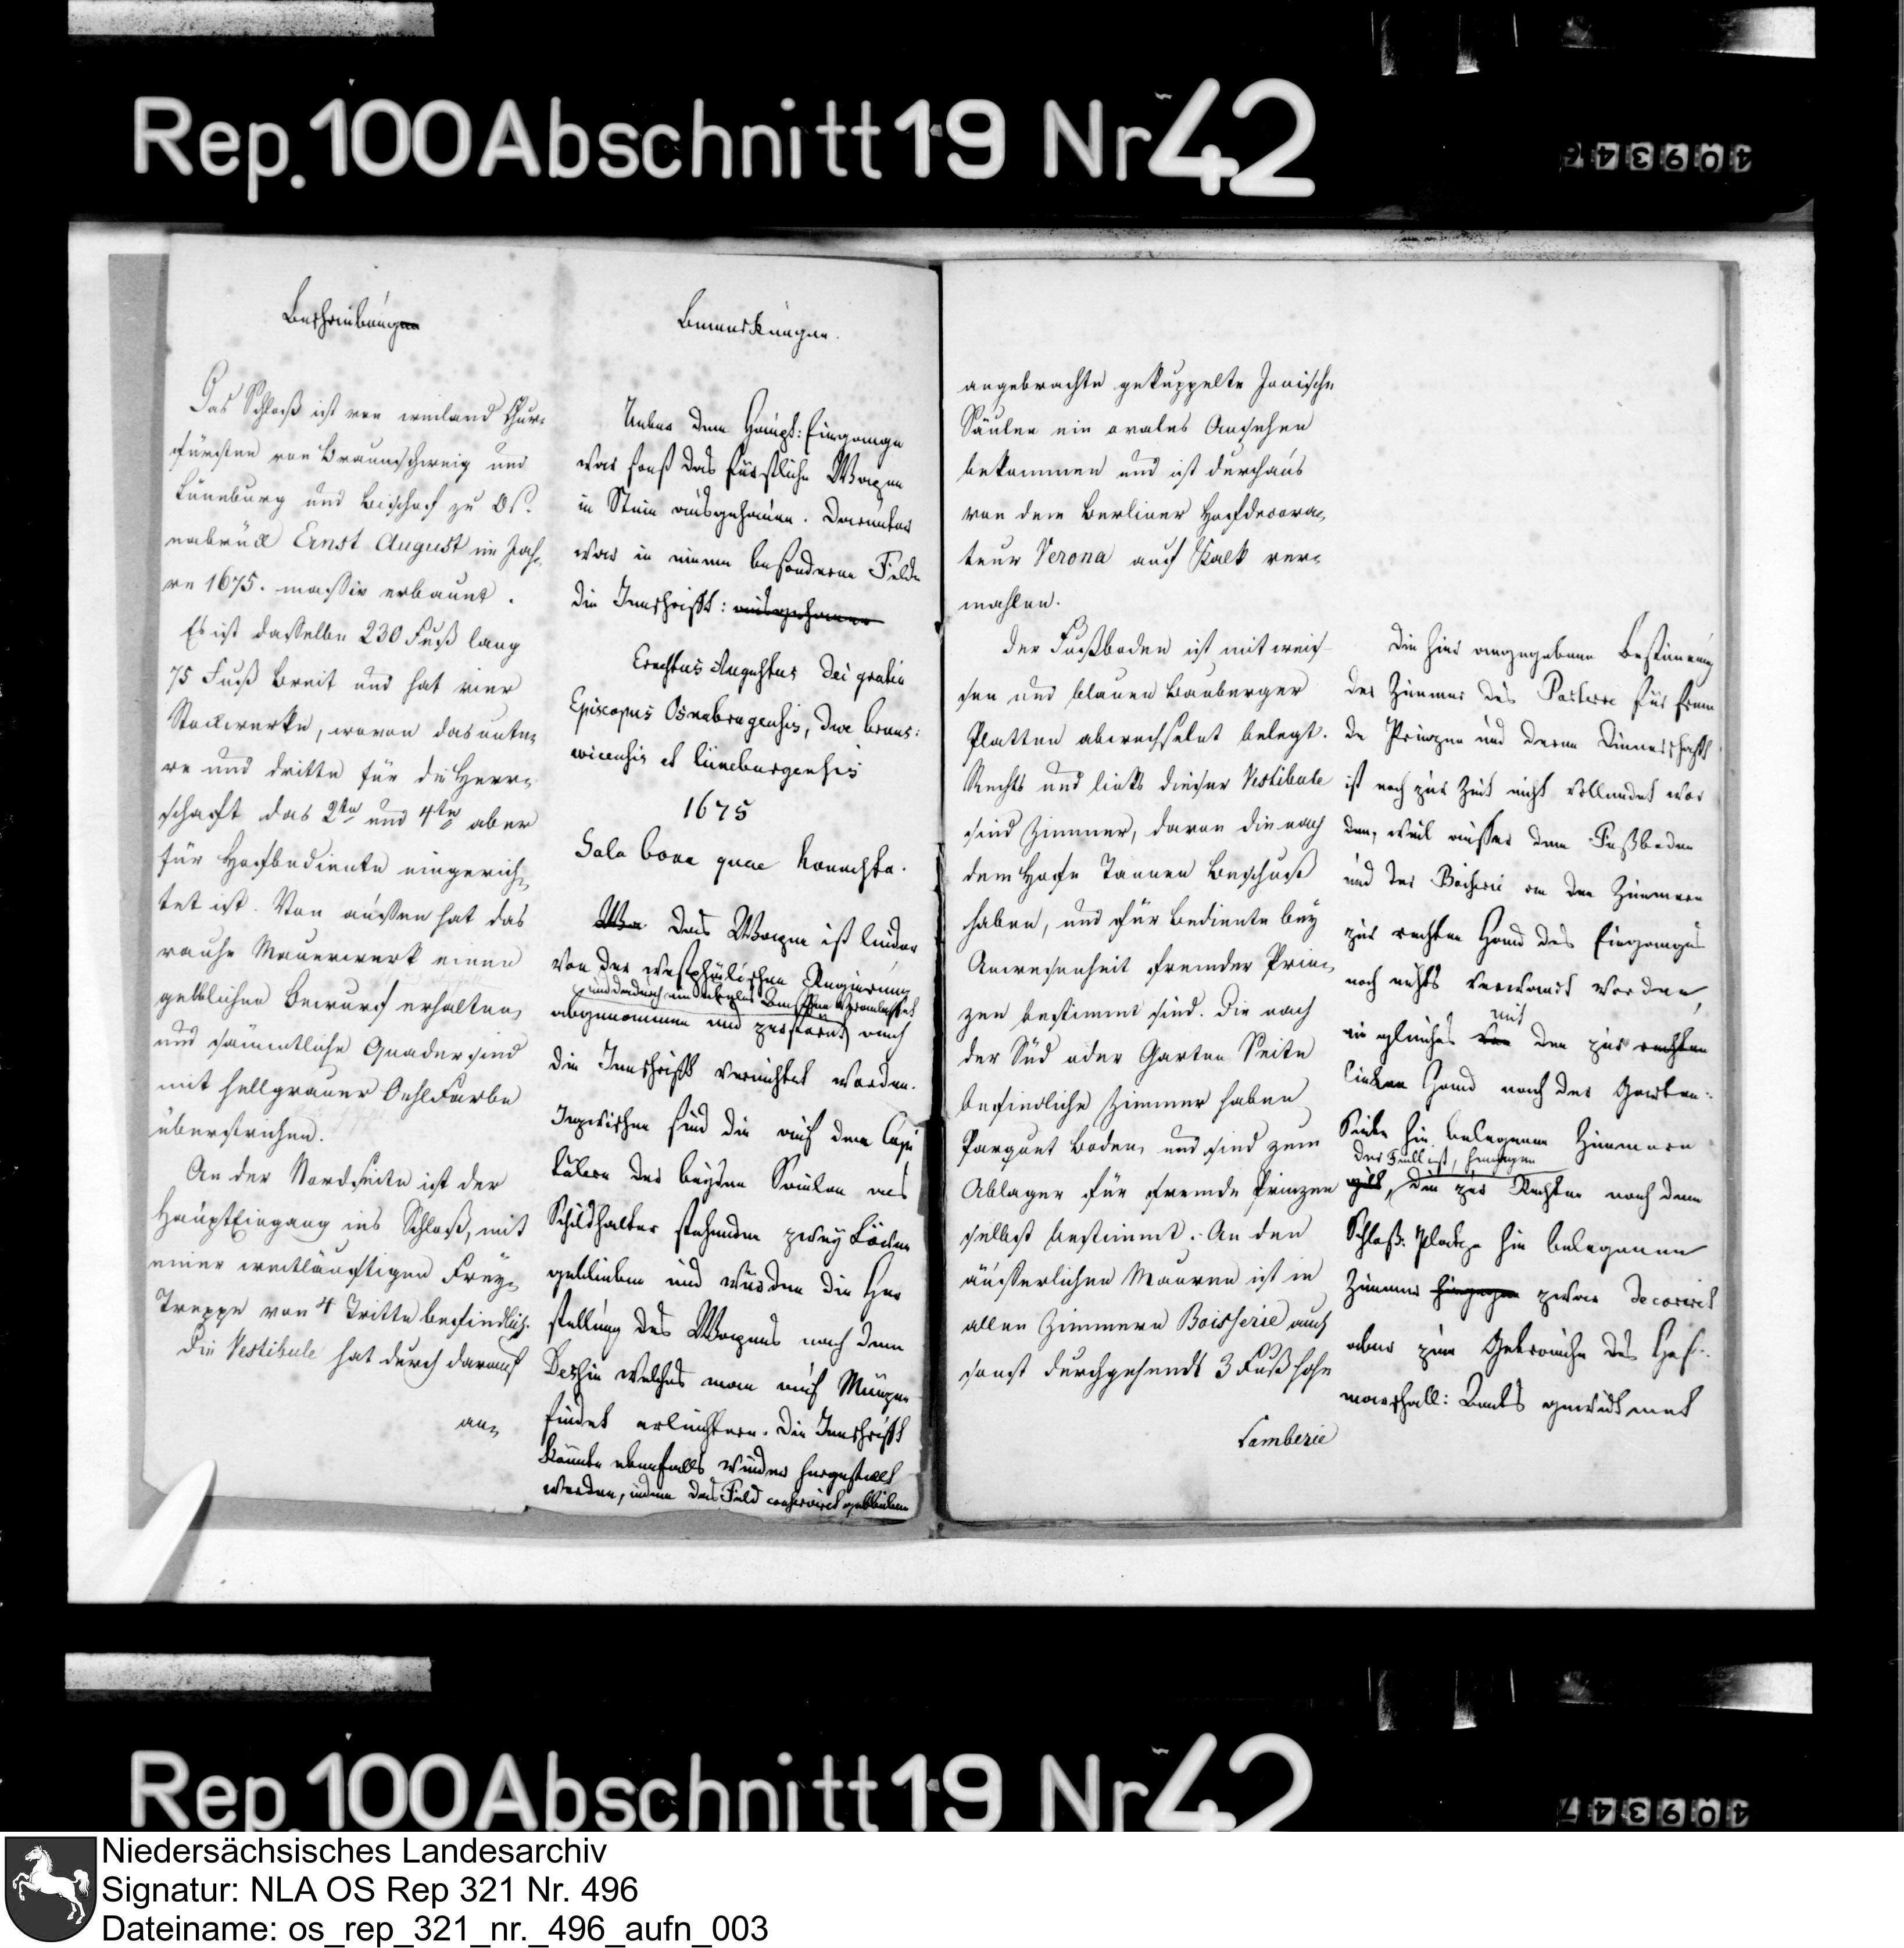 Rep. 100 Abschnitt 19 Nr 42
409346
Beschreibungen
Das Schloß ist von weiland Chur-
fürsten von Braunschweig und
Lüneburg und Bischof zu Os-
nabrück Ernst August im Jah-
re 1675. massiv erbaunt.
Es ist dasselbe 230 Fuß lang
75 Fuß breit und hat vier
Stockwerke, wovon das unte-
re und dritte für die Herr-
schaft das 2te und 4te aber
für Hofbediente eingerich-
tet ist. Von aussen hat das
rauhe Mauerwerk einen
gelblichen Bewurf erhalten,
und sämmtliche Quader sind
mit hellgrauer OehlFarbe
überstrichen.
An der Nordseite ist der
HauptEingang ins Schloß, mit
einer weitläuftigen Frey-
Treppe von 4 Tritte befindlich.
Die Vestibule hat durch darauf
an-
Bemerkungen.
Ueber dem Haupt: Eingange
war sonst das fürstliche Wapen
in Stein ausgehauen. Darunter
war in einem besonderen Felde
die Innschrift: ausgehauen
Ernestus Augustus Dei gratia
Episcopus Osnabrugensis, Dux bruns:
wicensis et lüneburgensis
1675
Sola bona quae honesta.
Wa Das Wapen ist leider
von der westphälischen Regierung
und dadurch ein
abgenommen und zerstört, auch
die Innschrift vernichtet worden.
Inzwischen sind die auf dem Capi
tälern der beyden Säulen als
Schildhalter stehenden zwey Löwen
geblieben und würden die Her
stellung des Wapens nach dem
Dessin welches man auf Münzen
findet erleichtern. Die Innschrift
könnte ebenfalls wieder hergestellt
werden, indem das Feld conservirt geblieben
angebrachte gekuppelte Jonische
Säulen ein ovales Ansehen
bekommen und ist durchaus
von dem Berliner Hofdecora-
teur Verona auf Kalk ver-
mahlen.
Der Fußboden ist mit weis-
sen und blauen Bauberger
Platten abwechselnt belegt.
Rechts und links dieser Vestibule
sind Zimmer, davon die nach
dem Hofe Tannen Beschuß
haben, und für Bediente bey
Anwesenheit fremder Prin-
zen bestimmt sind. Die nach
der Süd oder Garten Seite
befindliche Zimmer haben
Parquet Boden, und sind zum
Ablager für fremde Prinzen
selbst bestimmt. An den
äusserlichen Mauren ist in
allen Zimmern Boisserie auch
sonst durchgehends 3 Fuß hohe
Lamberie
Die hier angegebene Bestimmung
der Zimmer des Parterre für frem
de Prinzen und deren Dienerschaft
ist noch zur Zeit nicht vollendet wor
den, weil ausser dem Fußboden
und der Boiserie an den Zimmern
zur rechten Hand des Einganges
noch nichts verwandt worden,
mit
ein gleiches von den zur rechten
linken Hand nach der Garten:
Seite hin belegenen Zimmern
der Fall ist, hingegen
gilt, die zur Rechten nach dem
Schloß: Platze hin belegenen
Zimmer hingegen zwar decorirt
aber zum Gebrauche des Hof:
marschall: Amts gewidmet
Rep. 100 Abschnitt 19 Nr 42
409347
Niedersächsisches Landesarchiv
Signatur: NLA OS Rep 321 Nr. 496
Dateiname: os_rep_321_nr._496_aufn_003